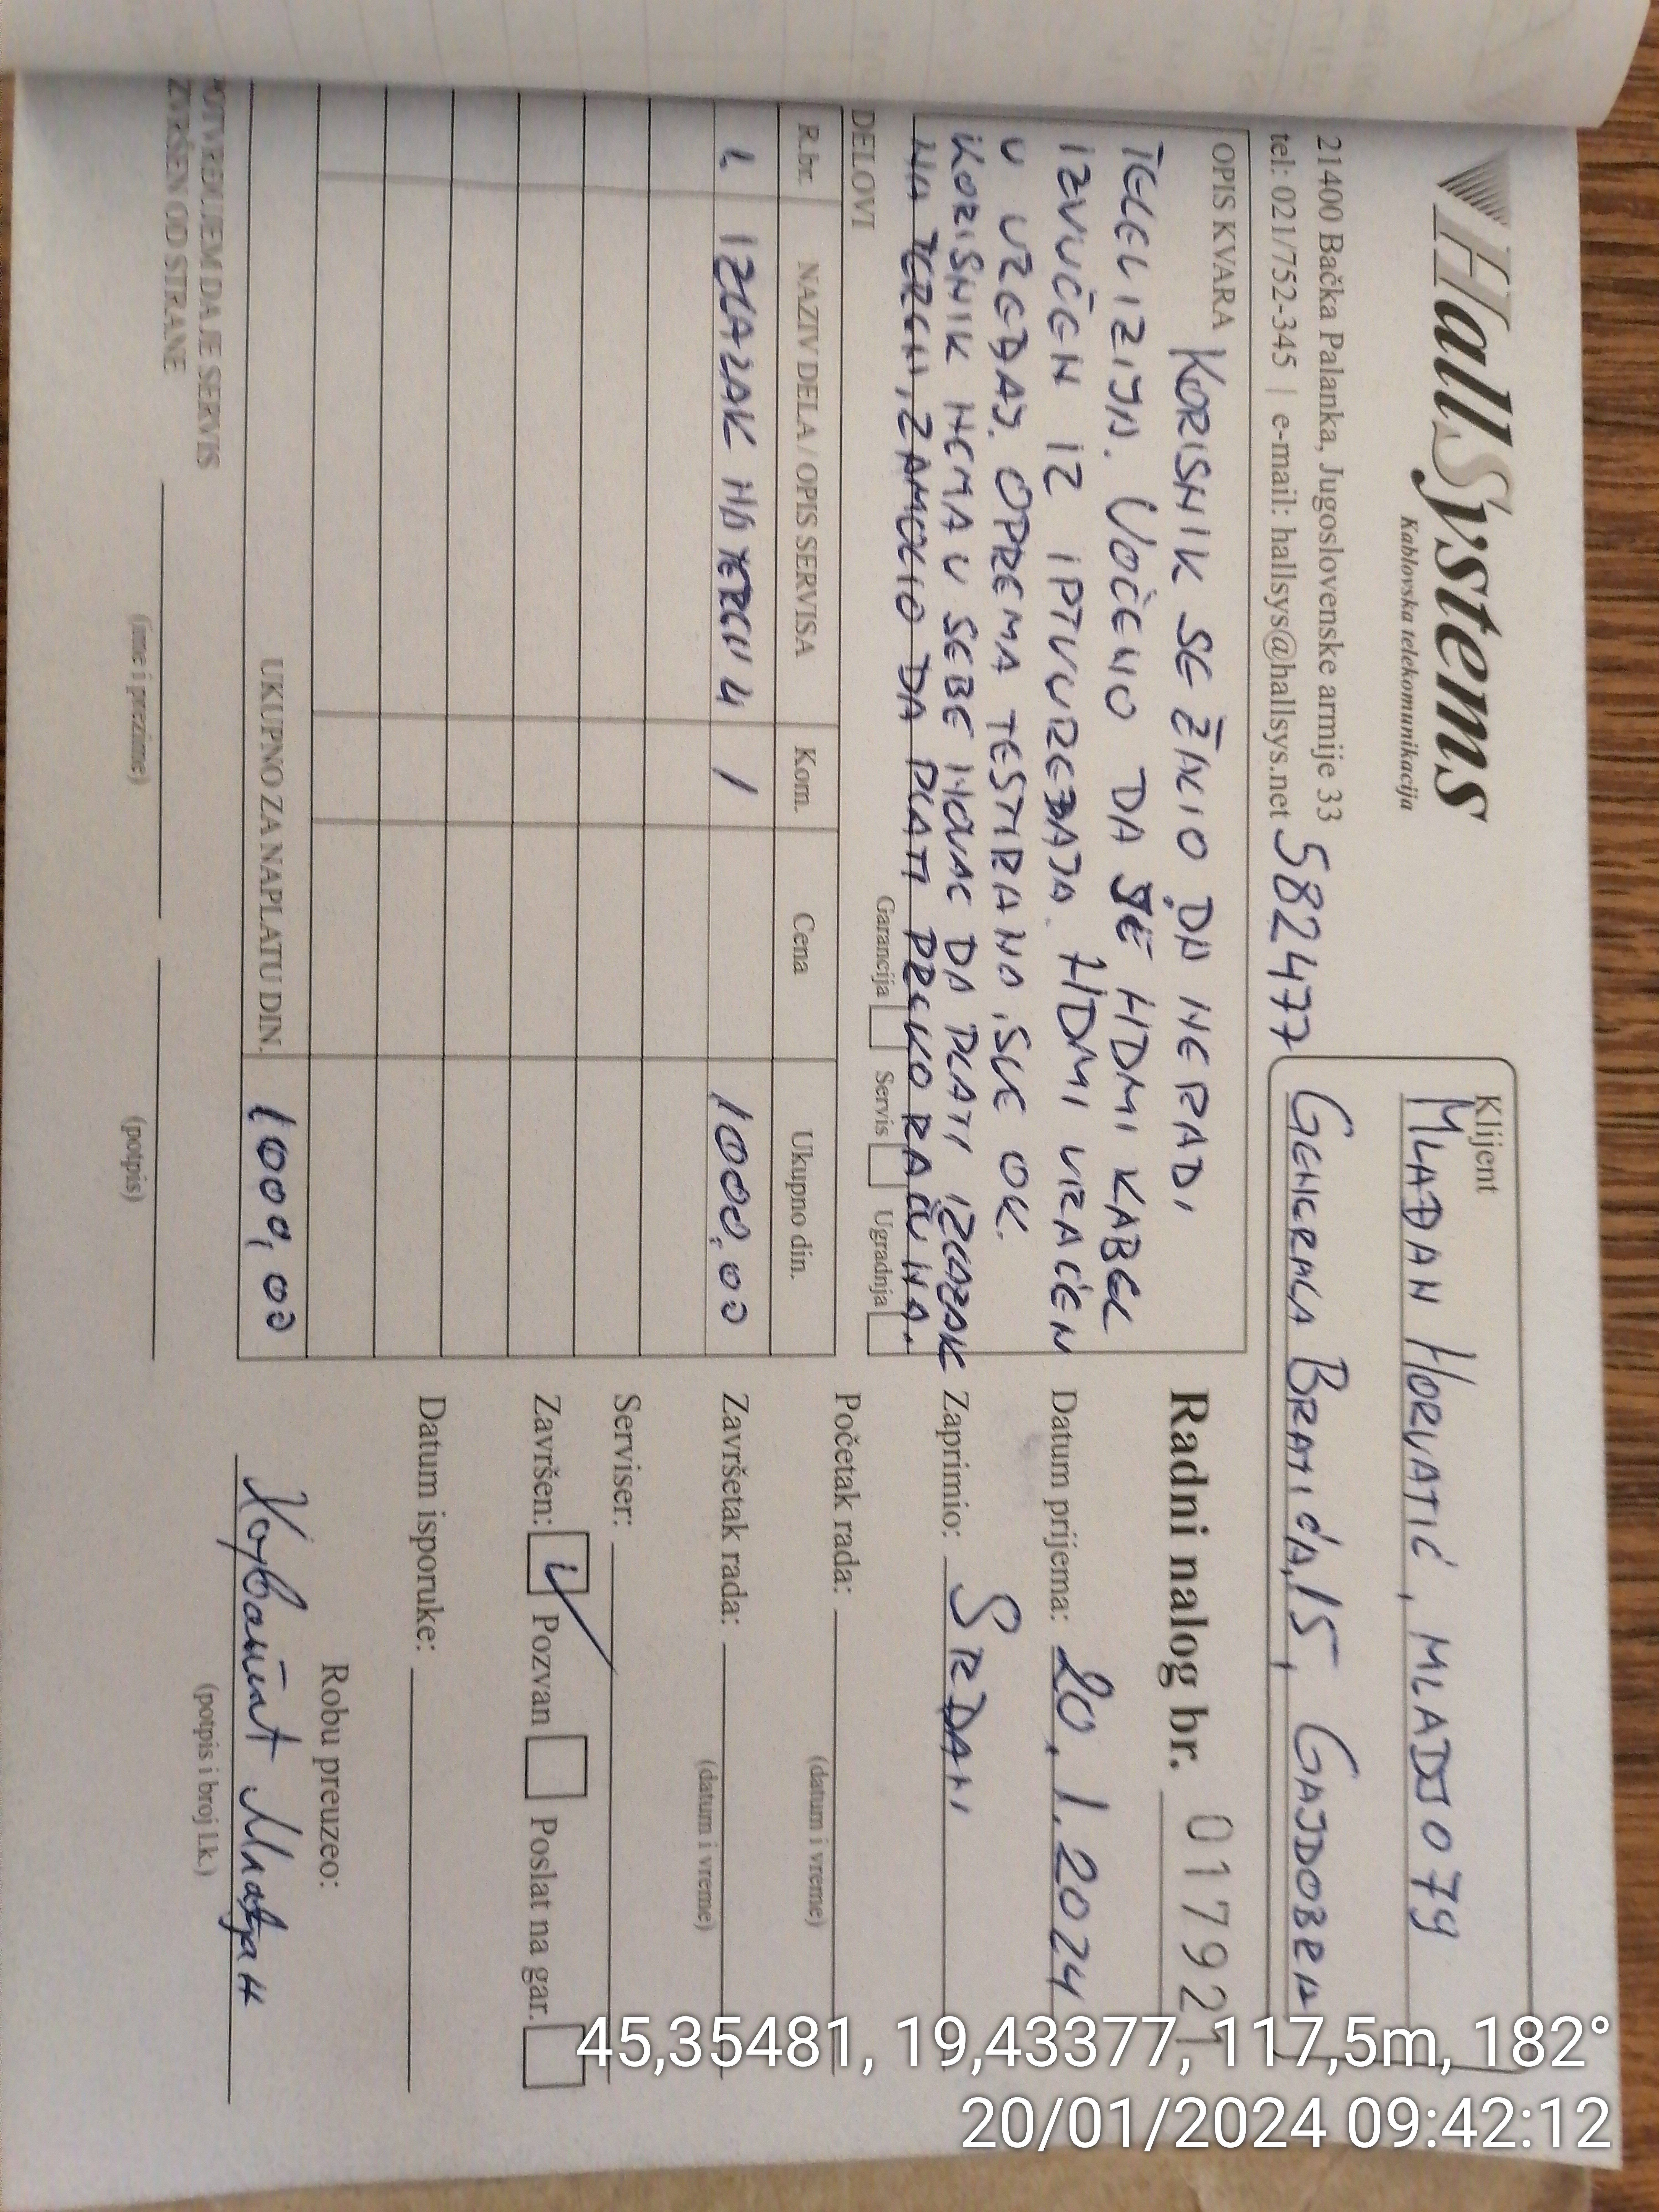 HallSystems
Kablovska telekomunikacija
21400 Bačka Palanka, Jugoslovenske armije 33
tel: 021/752-345 | e-mail: hallsys@hallsys.net 582477
Klijent
MLAĐAN HORVATIĆ, MLADJO79
GENERALA BRATIĆA,15, GAJDOBRA
OPIS KVARA KORISNIK SE ŽALIO DA NE RADI
TELEVIZIJA. UOČENO DA JE HDMI KABEL
IZVUČEN IZ IPTV UREĐAJA. HDMI VRAĆEN
U UREĐAJ. OPREMA TESTIRANA, SVE OK.
KORISNIK NEMA U SEBE NOVAC DA PLATI IZLAZAK
NA TEREN, ZAMOLIO DA PLATI PREKO RAČUNA.
Radni nalog br. 01792
Datum prijema: 20.1.2024
Zaprimio: SRĐAN
Početak rada:
(datum i vreme)
Završetak rada:
(datum i vreme)
Serviser:
Završen: Pozvan Poslat na gar.
Datum isporuke:
Robu preuzeo:
Хорватић Млађан
(potpis i broj l.k.)
DELOVI Garancija Servis Ugradnja
R.br. NAZIV DELA / OPIS SERVISA Kom. Cena Ukupno din.
1. IZLAZAK NA TEREN 1 1000,00
UKUPNO ZA NAPLATU DIN. 1000,00
POTVRĐUJEM DA JE SERVIS
IZVRŠEN OD STRANE
(ime i prezime) (potpis)
45,35481, 19,43377, 117,5m, 182°
20/01/2024 09:42:12